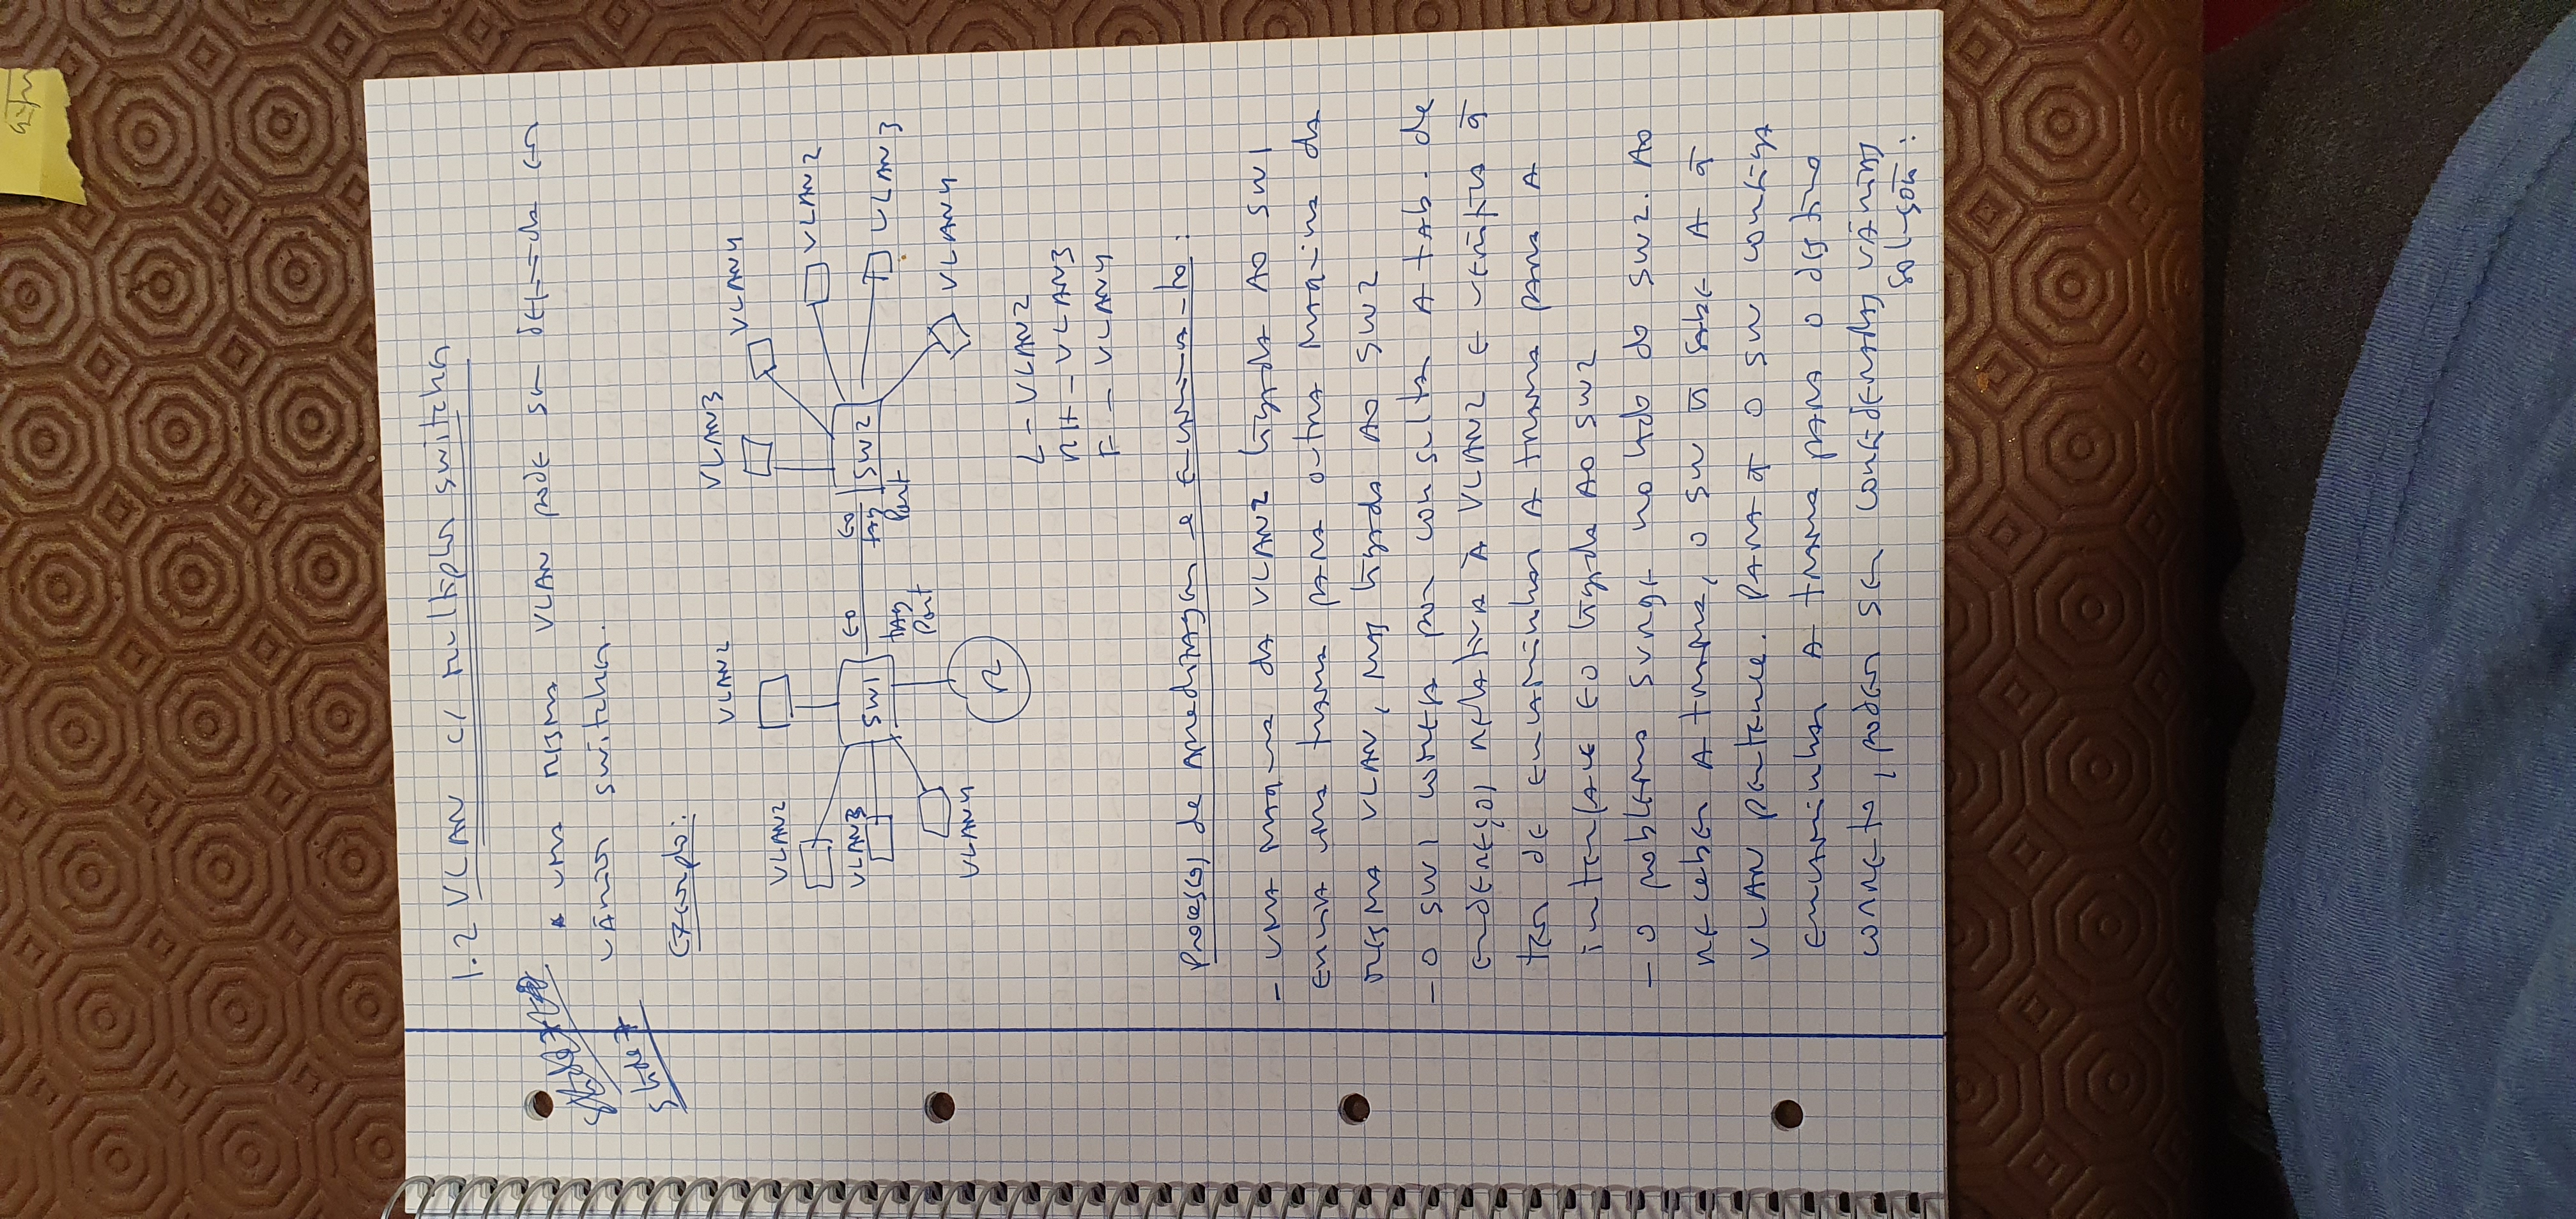 1.2 VLAN c/ multiplos switches
Slide 7
* uma mesma VLAN pode ser definida em
vários switches.
Exemplo:
VLAN2
VLAN3
VLAN4
VLAN2
VLAN2
VLAN3
SW1
E0
E0
SW2
VLAN3
TAG
Port
TAG
Port
VLAN4
VLAN4
R
L - VLAN2
RH - VLAN3
F - VLAN4
Processos de aprendizagem e encaminha-to:
- uma maquina da VLAN2 ligada ao SW1
envia uma trama para outra maquina da
mesma VLAN, mas ligada ao SW2
- o SW1 começa por consultar a tab. de
endereços relativa à VLAN2 e verifica q̃
tem de encaminhar a trama para a
interface E0 ligada ao SW2
- o problema surge no lado do SW2. Ao
receber a trama, o SW ñ sabe a q̃
VLAN pertence. Para q̃ o SW consiga
encaminhar a trama para o destino
correcto, podem ser consideradas várias
soluções: